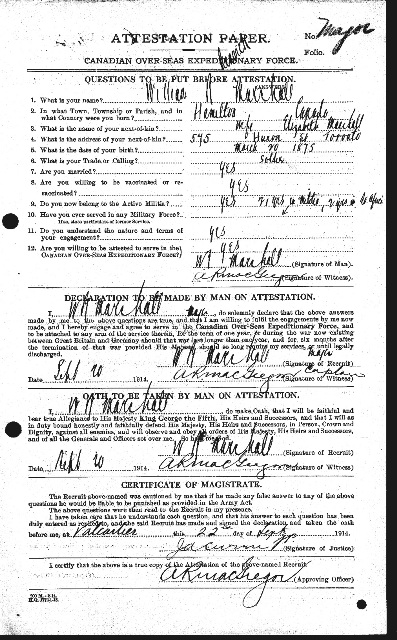 No. Major
ATTESTATION PAPER.
Folio.
CANADIAN OVER-SEAS EXPEDITIONARY FORCE.
QUESTIONS TO BE PUT BEFORE ATTESTATION.
(ANSWERS)
1. What is your name? Marshall
2. In what Town, Township or Parish, and in what Country were you born? Hamilton Canada
3. What is the name of your next-of-kin? Wife Elizabeth Marshall
4. What is the address of your next-of-kin? 595 Huron St Toronto
5. What is the date of your birth? March 20 1875
6. What is your Trade or Calling? Soldier
7. Are you married? yes
8. Are you willing to be vaccinated or re-vaccinated? yes
9. Do you now belong to the Active Militia? yes
10. Have you ever served in any Military Force? 
If so, state particulars of former Service.
11. Do you understand the nature and terms of your engagement? yes
12. Are you willing to be attested to serve in the CANADIAN OVER-SEAS EXPEDITIONARY FORCE? yes
W R Marshall (Signature of Man).
A R MacGregor (Signature of Witness).
DECLARATION TO BE MADE BY MAN ON ATTESTATION.
I, W R Marshall Major, do solemnly declare that the above answers
made by me to the above questions are true, and that I am willing to fulfil the engagements by me now
made, and I hereby engage and agree to serve in the Canadian Over-Seas Expeditionary Force, and to
be attached to any arm of the service therein, for the term of one year, or during the war now existing
between Great Britain and Germany should that war last longer than one year, and for six months after
the termination of that war provided His Majesty should so long require my services, or until legally
discharged.
W R Marshall Major (Signature of Recruit)
Date Sept 20 1914. A R MacGregor Capt (Signature of Witness)
OATH TO BE TAKEN BY MAN ON ATTESTATION.
I, W R Marshall, do make Oath, that I will be faithful and
bear true Allegiance to His Majesty King George the Fifth, His Heirs and Successors, and that I will as
in duty bound honestly and faithfully defend His Majesty, His Heirs and Successors, in Person, Crown and
Dignity, against all enemies, and will observe and obey all orders of His Majesty, His Heirs and Successors,
and of all the Generals and Officers set over me. So help me God.
W R Marshall (Signature of Recruit)
Date Sept 20 1914. A R MacGregor (Signature of Witness)
CERTIFICATE OF MAGISTRATE.
The Recruit above-named was cautioned by me that if he made any false answer to any of the
above questions he would be liable to be punished as provided in the Army Act.
The above questions were then read to the Recruit in my presence.
I have taken care that he understands each question, and that his answer to each question has been
duly entered as replied to, and the said Recruit has made and signed the declaration and taken the oath
before me, at Valcartier this 22nd day of Sept 1914.
(Signature of Justice)
I certify that the above is a true copy of the Attestation of the above-named Recruit.
A R MacGregor (Approving Officer)